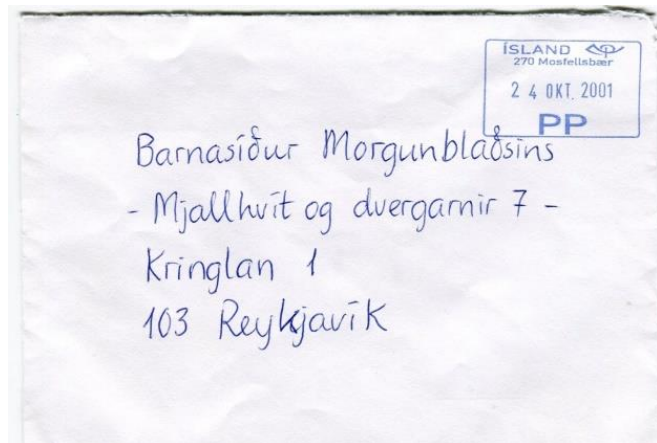 ÍSLAND
270 Mosfellsbær
2 4 OKT. 2001
PP
Barnasíður Morgunblaðsins
- Mjallhvít og dvergarnir 7 -
Kringlan 1
103 Reykjavík